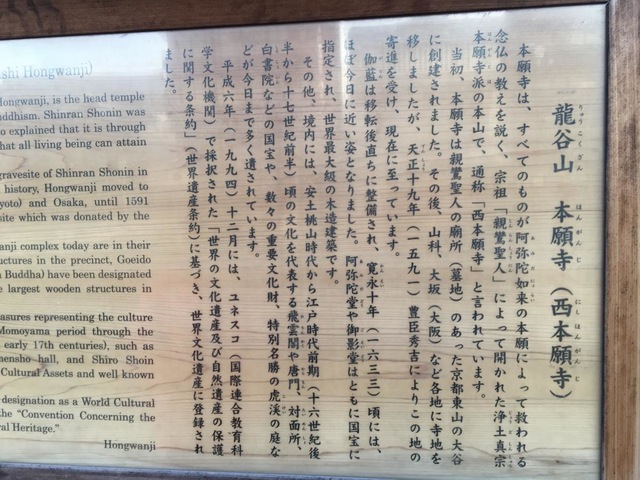 龍谷山 本願寺（西本願寺）
本願寺は、すべてのものが阿弥陀如来の本願によって救われる
念仏の教えを説く、宗祖「親鸞聖人」によって開かれた浄土真宗
本願寺派の本山で、通称「西本願寺」と言われています。
当初、本願寺は親鸞聖人の廟所（墓地）のあった京都東山の大谷
に創建されました。その後、山科、大坂（大阪）など各地に寺地を
移しましたが、天正十九年（一五九一）豊臣秀吉によりこの地の
寄進を受け、現在に至っています。
伽藍は移転後直ちに整備され、寛永十年（一六三三）頃には、
ほぼ今日に近い姿となりました。阿弥陀堂や御影堂はともに国宝に
指定され、世界最大級の木造建築です。
その他、境内には、安土桃山時代から江戸時代前期（十六世紀後
半から十七世紀前半）頃の文化を代表する飛雲閣や唐門、対面所、
白書院などの国宝や、数々の重要文化財、特別名勝の虎渓の庭な
どが今日まで多く遺されています。
平成六年（一九九四）十二月には、ユネスコ（国際連合教育科
学文化機関）で採択された「世界の文化遺産及び自然遺産の保護
に関する条約」（世界遺産条約）に基づき、世界文化遺産に登録され
ました。
shi Hongwanji)
Hongwanji, is the head temple
ddhism. Shinran Shonin was
o explained that it is through
hat all living being can attain
gravesite of Shinran Shonin in
history, Hongwanji moved to
yoto) and Osaka, until 1591
site which was donated by the
anji complex today are in their
uctures in the precinct, Goeido
Buddha) have been designated
e largest wooden structures in
asures representing the culture
Momoyama period through the
early 17th centuries), such as
mensho hall, and Shiro Shoin
Cultural Assets and well known
designation as a World Cultural
the "Convention Concerning the
ral Heritage."
Hongwanji